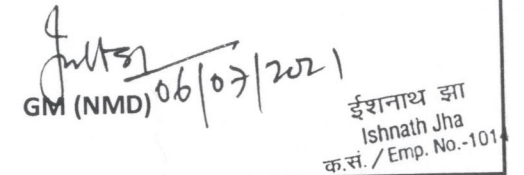 GM (NMD) 06/07/2021
ईशनाथ झा
Ishnath Jha
क.सं. / Emp. No.-1014